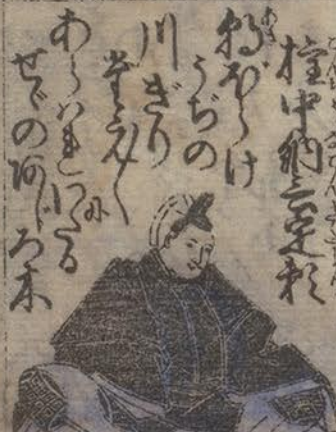 權中納言定頼
朝ぼらけ
うぢの
川ぎり
堂え〴〵
尓
あらハれわたる
せゞの阿じろ木